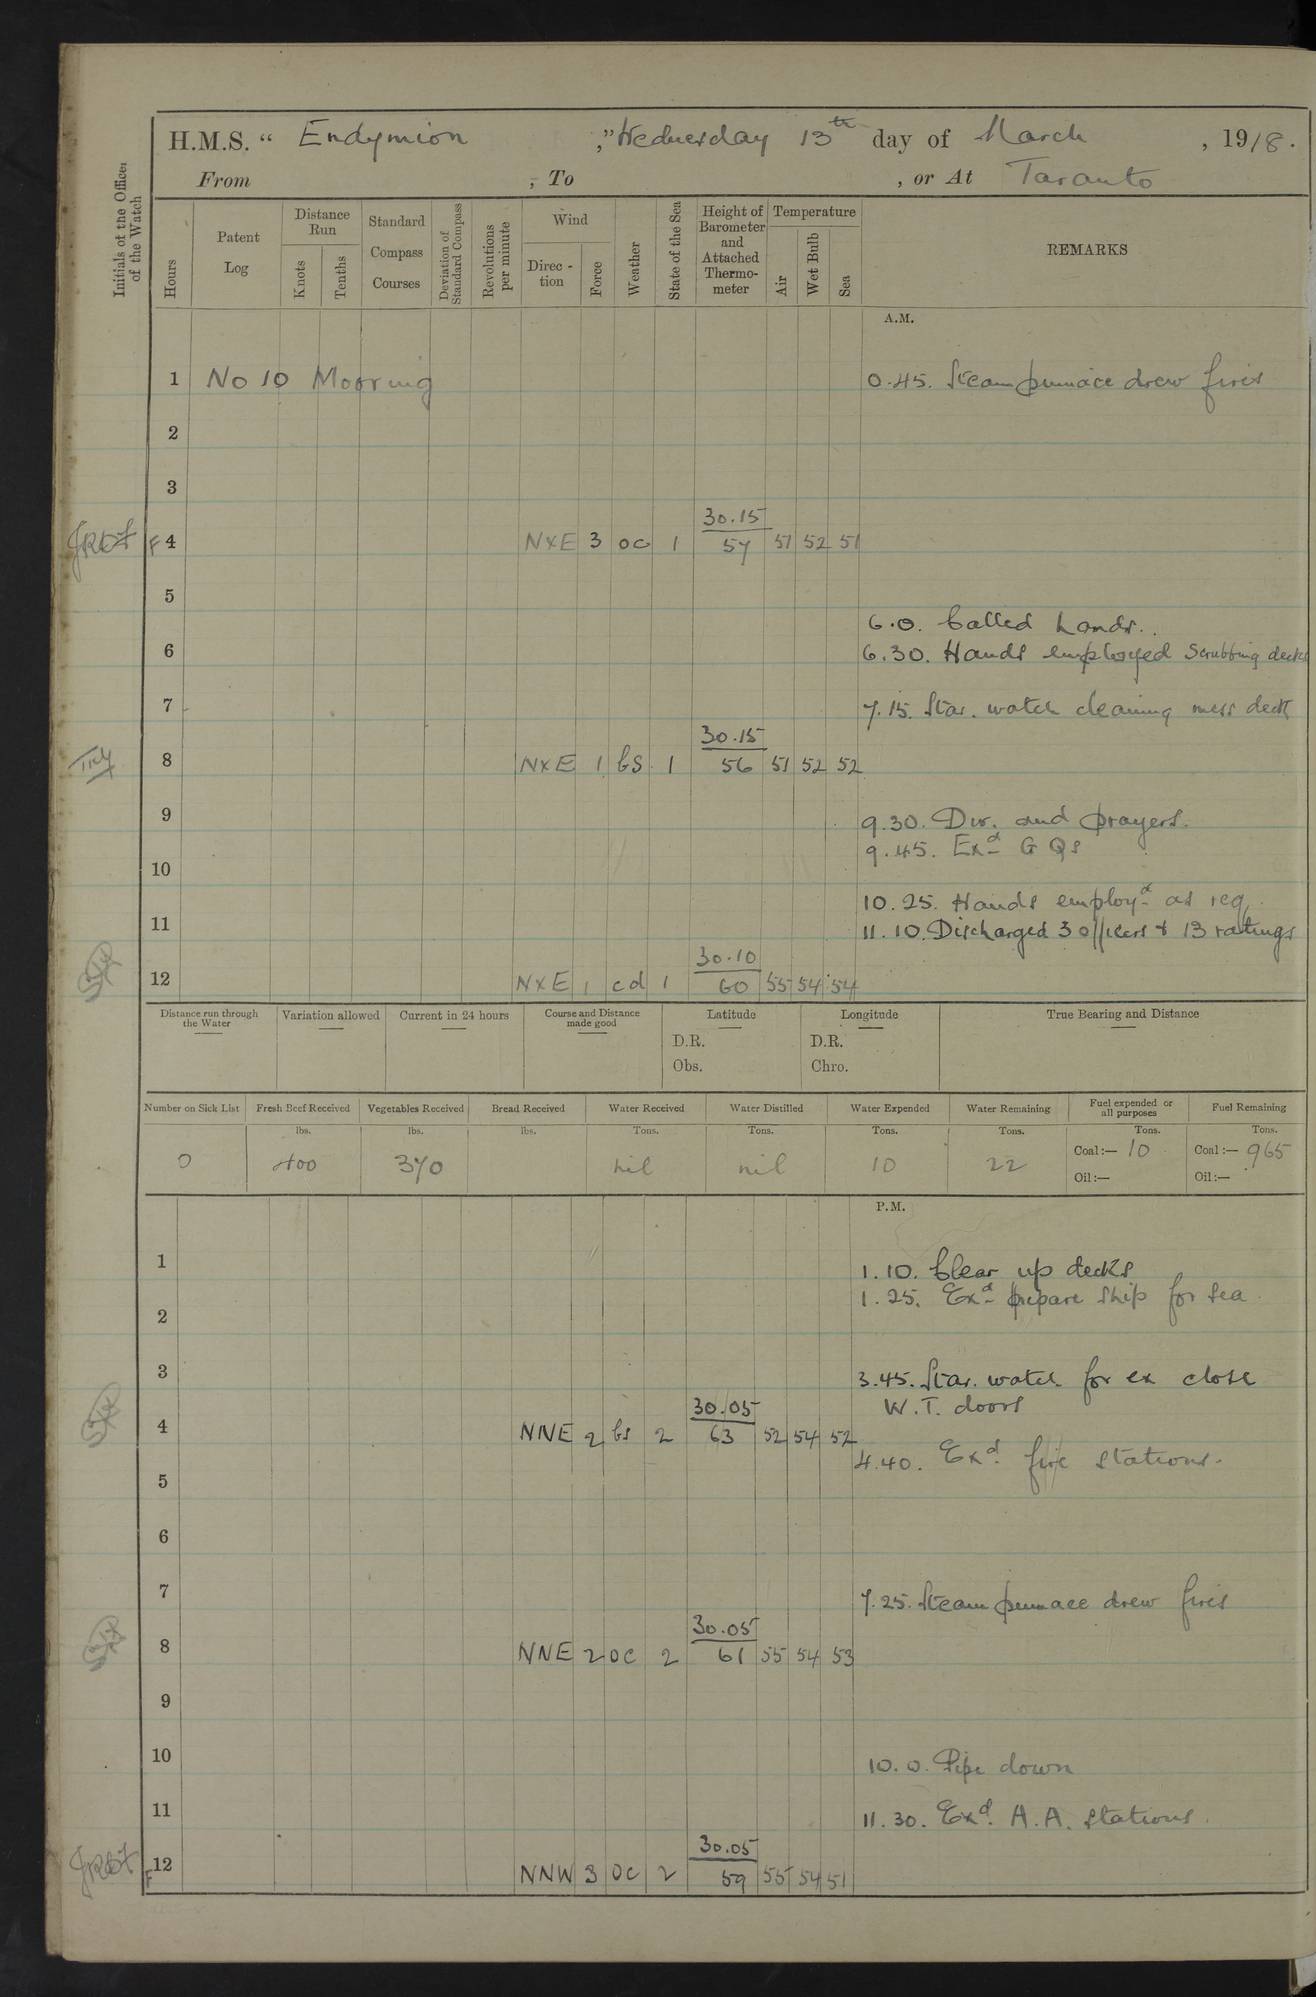 H.M.S. “ Endymion ,” Wednesday 13th day of March , 1918.
From , To , or At Taranto
Initials of the Officer of the Watch
Hours
Patent Log
Distance Run
Knots
Tenths
Standard Compass Courses
Deviation of Standard Compass
Revolutions per minute
Wind
Direc-tion
Force
Weather
State of the Sea
Height of Barometer and Attached Thermo-meter
Temperature
Air
Wet Bulb
Sea
REMARKS
A.M.
1 No 10 Mooring 0.45. Steam pinnace drew fires
2
3
30.15
F 4 NxE 3 oc 1 57 51 52 51
5
6.0. Called hands.
6 6.30. Hands employed Scrubbing decks
7 7.15. Star. watch cleaning mess deck
30.15
8 NxE 1 bs 1 56 51 52 52
9 9.30. Div. and prayers.
9.45. Exd G Qs
10
10.25. Hands employd as req.
11 11.10. Discharged 3 officers & 13 ratings
30.10
12 NxE 1 cd 1 60 55 54 54
Distance run through the Water
Variation allowed
Current in 24 hours
Course and Distance made good
Latitude
D.R.
Obs.
Longitude
D.R.
Chro.
True Bearing and Distance
Number on Sick List Fresh Beef Received Vegetables Received Bread Received Water Received Water Distilled Water Expended Water Remaining Fuel expended or all purposes Fuel Remaining
lbs. lbs. lbs. Tons. Tons. Tons. Tons. Tons. Tons.
0 400 370 nil nil 10 22 Coal:— 10 Coal:— 965
Oil:— Oil:—
P.M.
1 1.10. Clear up decks
1.25. Exd prepare ship for sea
2
3 3.45. Star. watch for ex close
30.05 W.T. doors
4 NNE 2 bs 2 63 52 54 52
4.40. Exd. fire stations.
5
6
7 7.25. Steam pinnace drew fires
30.05
8 NNE 2 oc 2 61 55 54 53
9
10 10.0. Pipe down
11 11.30. Exd. A.A. stations.
30.05
F 12 NNW 3 oc 2 59 55 54 51